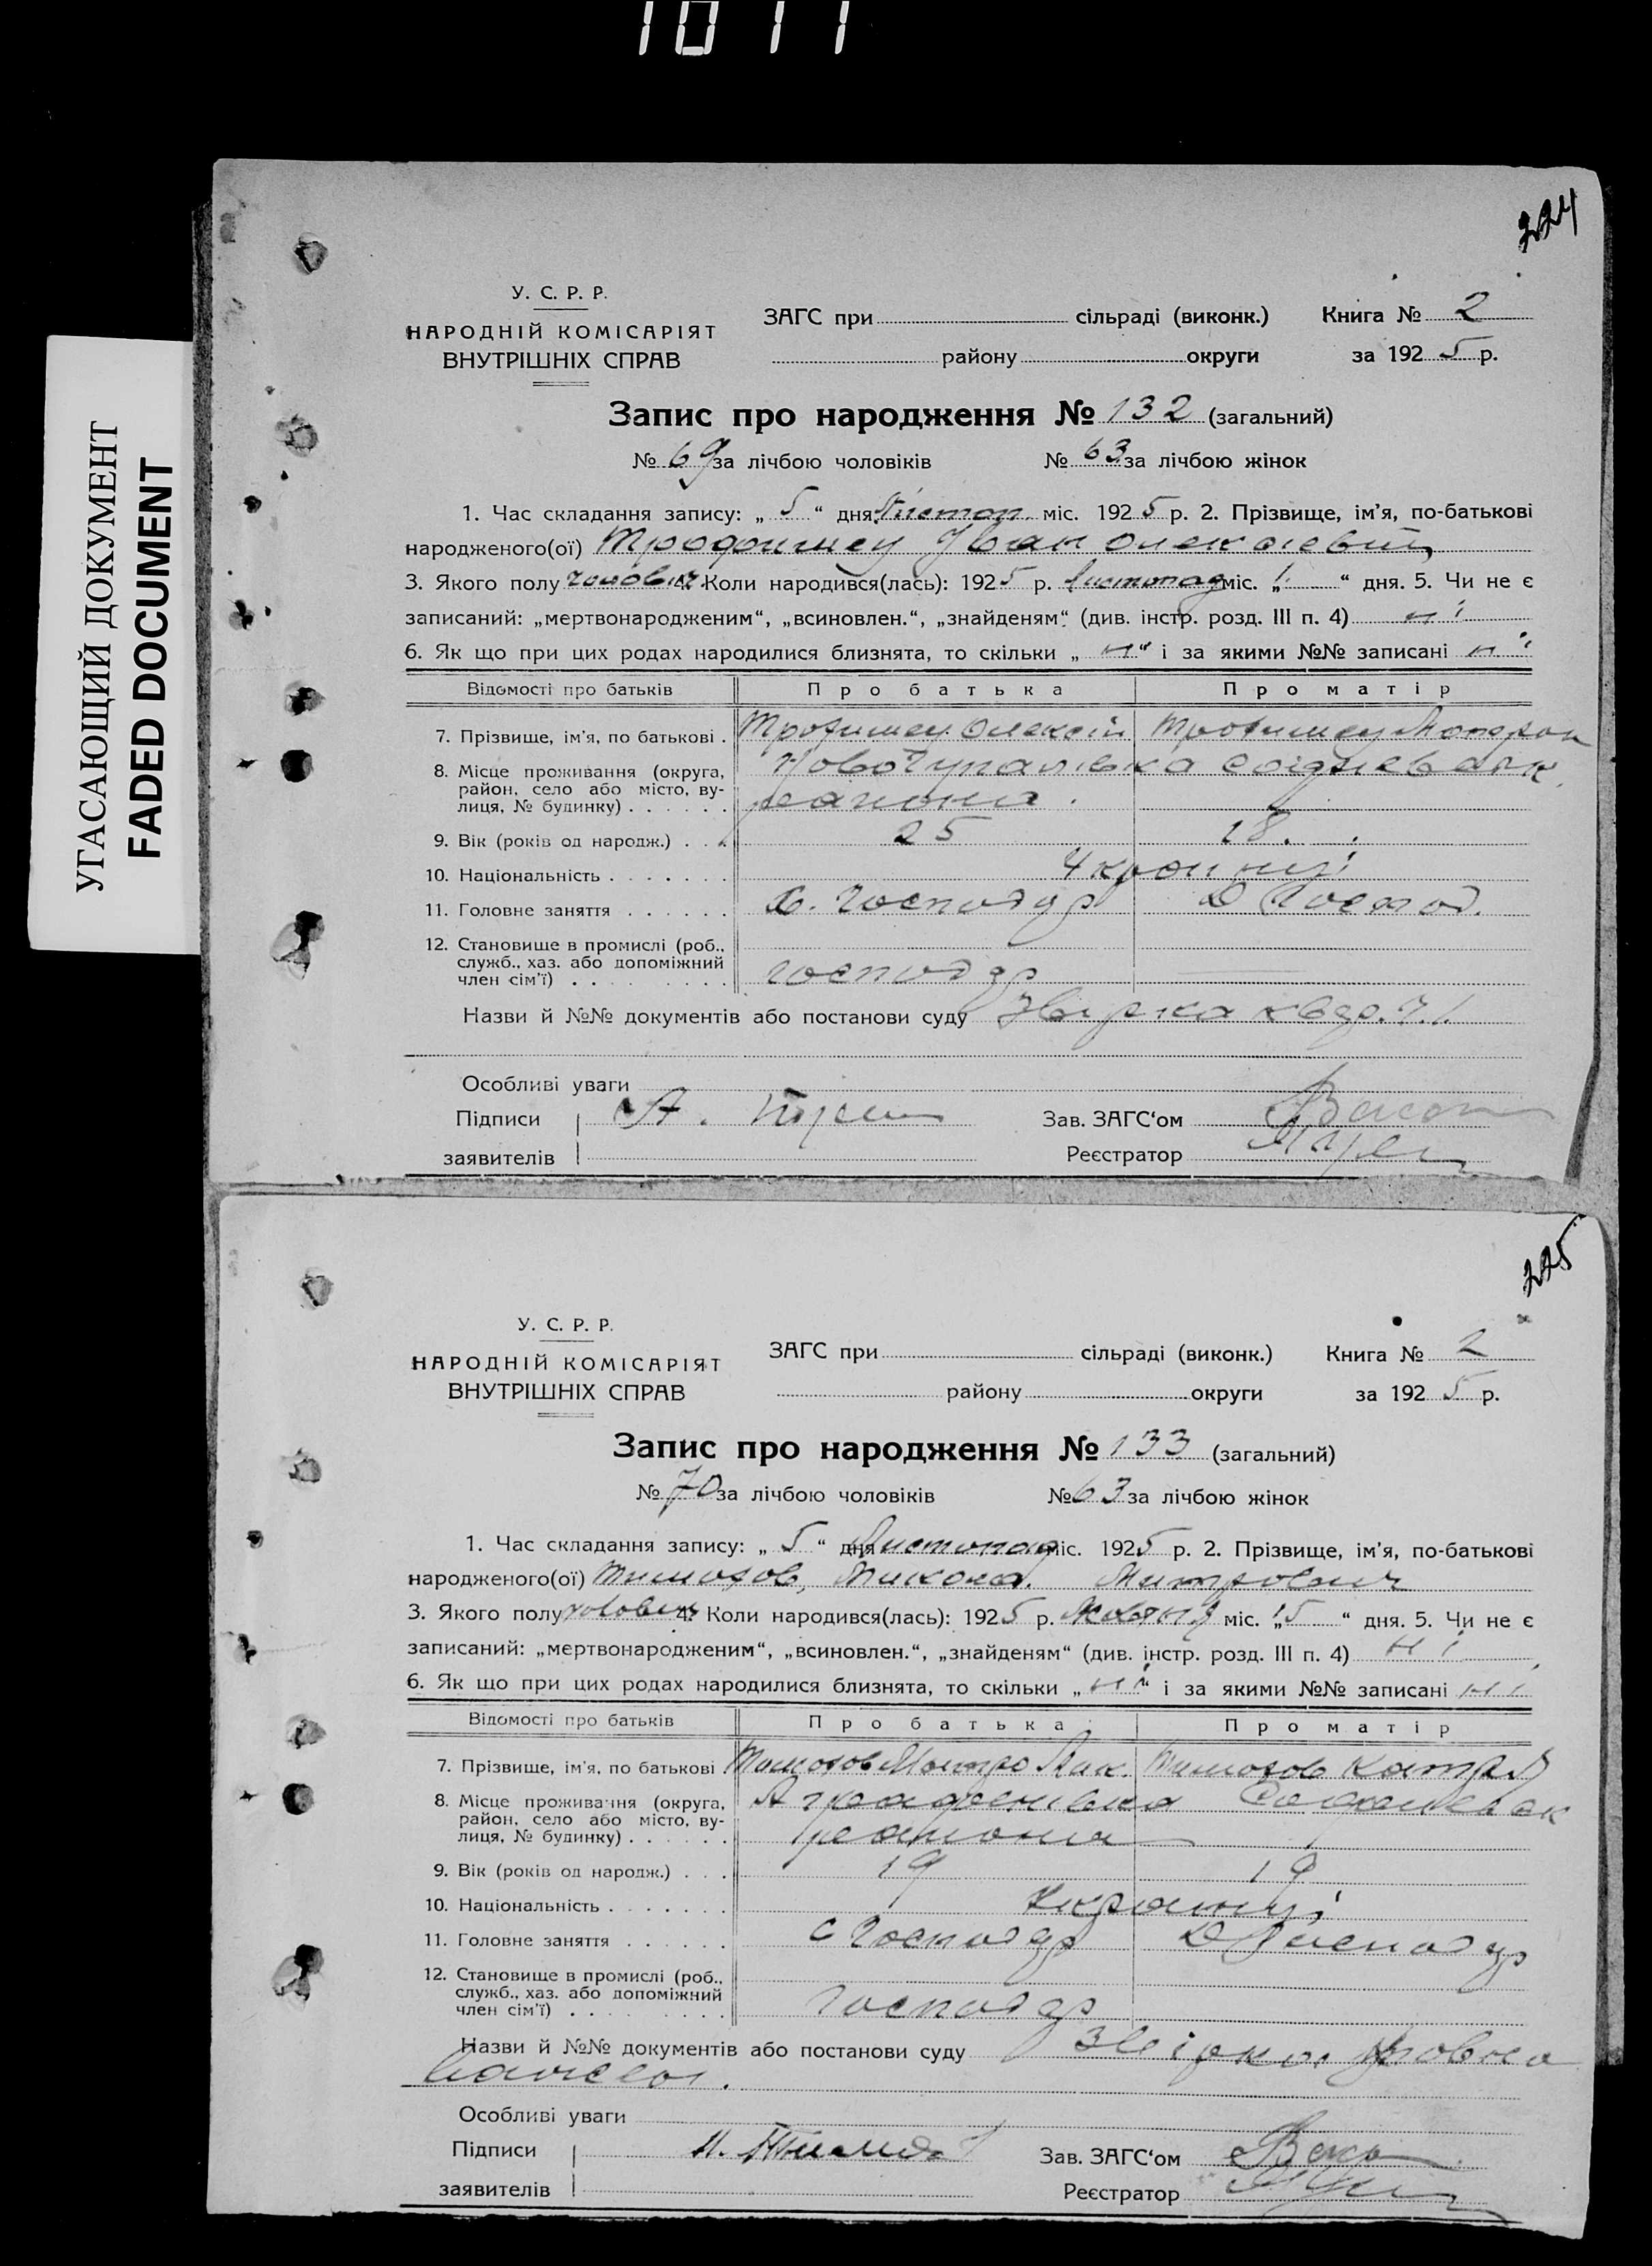 1011
УГАСАЮЩИЙ ДОКУМЕНТ
FADED DOCUMENT
224
У. С. Р. Р.
НАРОДНІЙ КОМІСАРІЯТ
ВНУТРІШНІХ СПРАВ
ЗАГС при сільраді (виконк.) Книга № 2
району округи за 1925 р.
Запис про народження № 132 (загальний)
№ 69 за лічбою чоловіків № 63 за лічбою жінок
1. Час складання запису: „ 5 “ дня Листоп. міс. 1925 р. 2. Прізвище, ім’я, по-батькові
народженого(ої) Іван Олексіевич
3. Якого полу чоловіч. 4. Коли народився(лась): 1925 р. Листопад міс. „ 1 “ дня. 5. Чи не є
записаний: „мертвонародженим“, „всиновлен.“, „знайденям“ (див. інстр. розд. III п. 4) ні
6. Як що при цих родах народилися близнята, то скільки „ ні “ і за якими №№ записані ні
Відомості про батьків Про батька Про матір
7. Прізвище, ім’я, по батькові . Олексій
8. Місце проживання (округа, район, село або місто, вулиця, № будинку) . . . . . . района
9. Вік (років од народж.) . . . 25 18.
10. Національність . . . . . . . Українці
11. Головне заняття . . . . . . Х. Господар Д Господ.
12. Становище в промислі (роб., служб., хаз. або допоміжний член сім’ї) . . . . . . . . . господар
Назви й №№ документів або постанови суду
Особливі уваги
Підписи А. Зав. ЗАГС‘ом
заявителів Реєстратор
225
У. С. Р. Р.
НАРОДНІЙ КОМІСАРІЯТ
ВНУТРІШНІХ СПРАВ
ЗАГС при сільраді (виконк.) Книга № 2
району округи за 1925 р.
Запис про народження № 133 (загальний)
№ 70 за лічбою чоловіків № 63 за лічбою жінок
1. Час складання запису: „ 5 “ дня Листопад міс. 1925 р. 2. Прізвище, ім’я, по-батькові
народженого(ої) Тимохов, Микола. Митрович
3. Якого полу чоловіч 4. Коли народився(лась): 1925 р. Жовтня міс. „ 15 “ дня. 5. Чи не є
записаний: „мертвонародженим“, „всиновлен.“, „знайденям“ (див. інстр. розд. III п. 4) ні
6. Як що при цих родах народилися близнята, то скільки „ ні “ і за якими №№ записані ні
Відомості про батьків Про батька Про матір
7. Прізвище, ім’я, по батькові Тимохов Митро Тимохов
8. Місце проживання (округа, район, село або місто, вулиця, № будинку) . . . . . . Аграфенівка района
9. Вік (років од народж.) . . . 19 19
10. Національність . . . . . . . Українці
11. Головне заняття . . . . . . С Господар Д Господар
12. Становище в промислі (роб., служб., хаз. або допоміжний член сім’ї) . . . . . . . . . господар
Назви й №№ документів або постанови суду
Особливі уваги
Підписи Зав. ЗАГС‘ом
заявителів Реєстратор